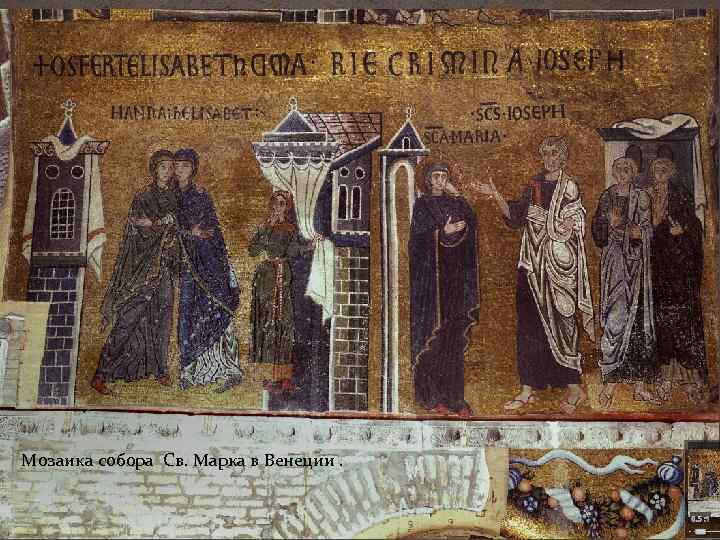 +OSFERTELISABETh MA· RIE CRIMINA·IOSEPH
HANNA:hELISABET:
·SCS·IOSEPH
SCA·MARIA·
Мозаика собора Св. Марка в Венеции .